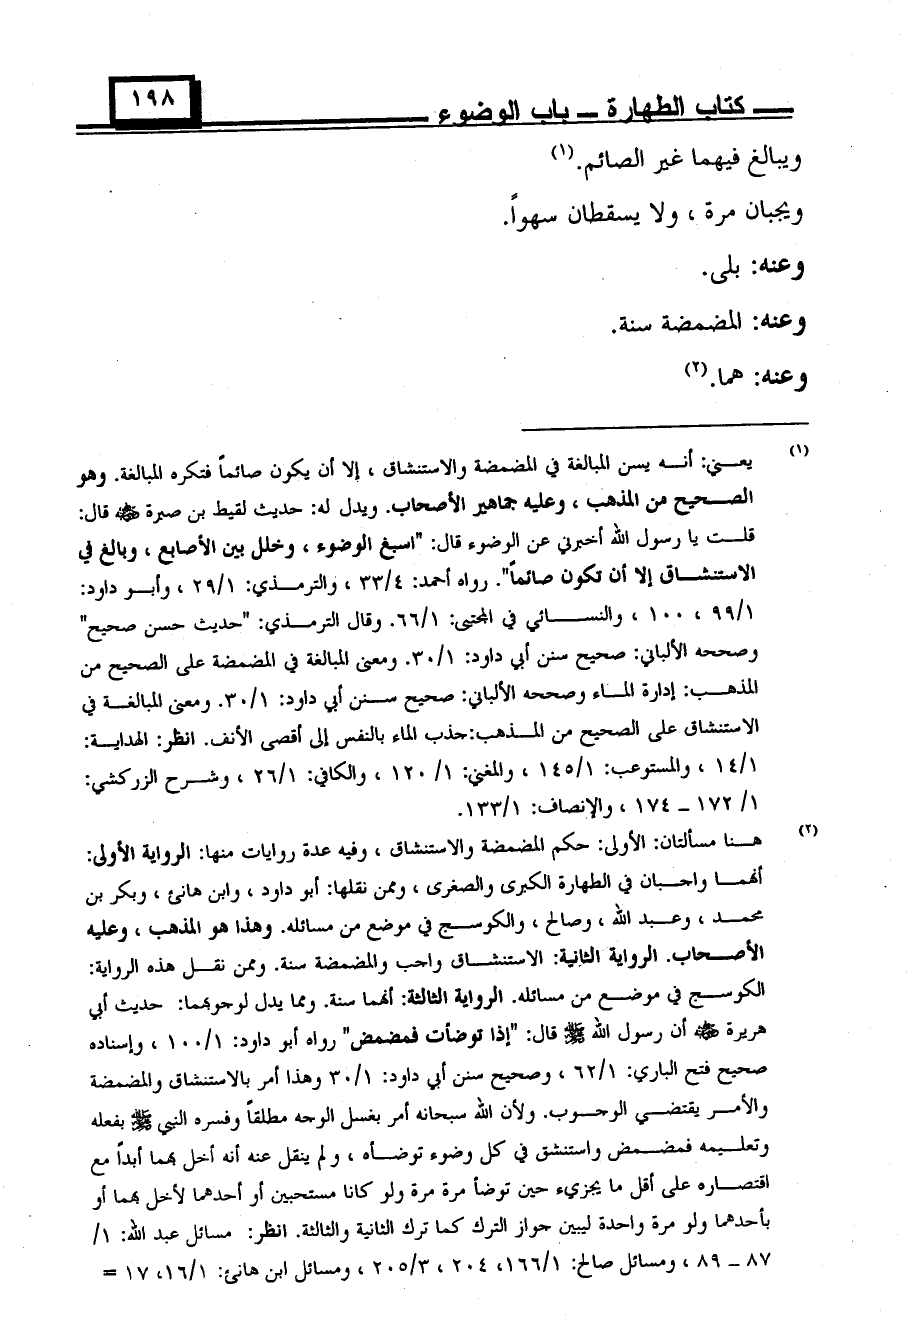 كتاب الطهارة ــ باب الوضوء
١٩٨
ويبالغ فيهما غير الصائم.(١)
ويجبان مرة ، ولا يسقطان سهواً.
وعنه: بلى.
وعنه: المضمضة سنة.
وعنه: هما.(٢)
(١) يعني: أنه يسن المبالغة في المضمضة والاستنشاق ، إلا أن يكون صائماً فتكره المبالغة. وهو
الصحيح من المذهب ، وعليه جماهير الأصحاب. ويدل له: حديث لقيط بن صبرة ﷺ قال:
قلت يا رسول الله أخبرني عن الوضوء قال: "اسبغ الوضوء ، وخلل بين الأصابع ، وبالغ في
الاستنشاق إلا أن تكون صائماً". رواه أحمد: ٣٣/٤ ، والترمذي: ٢٩/١ ، وأبو داود:
٩٩/١ ، ١٠٠ ، والنسائي في المجتبى: ٦٦/١. وقال الترمذي: "حديث حسن صحيح"
وصححه الألباني: صحيح سنن أبي داود: ٣٠/١. ومعنى المبالغة في المضمضة على الصحيح من
المذهب: إدارة الماء وصححه الألباني: صحيح سنن أبي داود: ٣٠/١. ومعنى المبالغة في
الاستنشاق على الصحيح من المذهب:جذب الماء بالنفس إلى أقصى الأنف. انظر: الهداية:
١٤/١ ، والمستوعب: ١٤٥/١ ، والمغني: ١/ ١٢٠ ، والكافي: ٢٦/١ ، وشرح الزركشي:
١/ ١٧٢ ــ ١٧٤ ، والإنصاف: ١٣٣/١.
(٢) هنا مسألتان: الأولى: حكم المضمضة والاستنشاق ، وفيه عدة روايات منها: الرواية الأولى:
أنهما واجبان في الطهارة الكبرى والصغرى ، وممن نقلها: أبو داود ، وابن هانئ ، وبكر بن
محمد ، وعبد الله ، وصالح ، والكوسج في موضع من مسائله. وهذا هو المذهب ، وعليه
الأصحاب. الرواية الثانية: الاستنشاق واجب والمضمضة سنة. وممن نقل هذه الرواية:
الكوسج في موضع من مسائله. الرواية الثالثة: أنهما سنة. ومما يدل لوجوبهما: حديث أبي
هريرة ﷺ أن رسول الله ﷺ قال: "إذا توضأت فمضمض" رواه أبو داود: ١٠٠/١ ، وإسناده
صحيح فتح الباري: ٦٢/١ ، وصحيح سنن أبي داود: ٣٠/١ وهذا أمر بالاستنشاق والمضمضة
والأمر يقتضي الوجوب. ولأن الله سبحانه أمر بغسل الوجه مطلقاً وفسره النبي ﷺ بفعله
وتعليمه فمضمض واستنشق في كل وضوء توضأه ، ولم ينقل عنه أنه أخل بهما أبداً مع
اقتصاره على أقل ما يجزيء حين توضأ مرة مرة ولو كانا مستحبين أو أحدهما لأخل بهما أو
بأحدهما ولو مرة واحدة ليبين جواز الترك كما ترك الثانية والثالثة. انظر: مسائل عبد الله: ١/
٨٧ ــ ٨٩ ، ومسائل صالح: ١٦٦/١، ٢٠٤ ، ٢٠٥/٣ ، ومسائل ابن هانئ: ١٦/١، ١٧ =